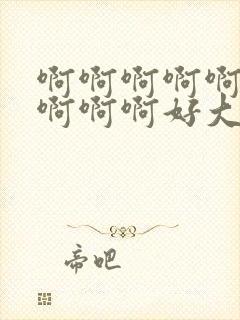 啊啊啊啊啊
啊啊啊好大
帝吧